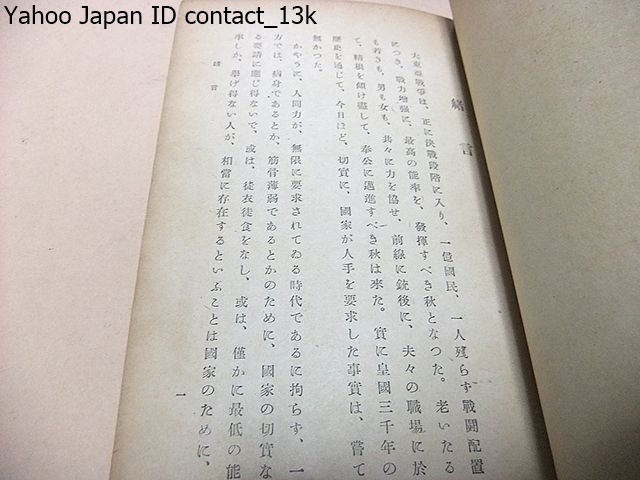 Yahoo Japan ID contact_13k
緒言
大東亞戰爭は、正に決戰段階に入り、一億國民、一人殘らず戰鬪配置
につき、戰力增强に、最高の能率を、發揮すべき秋となつた。老いたる
も若きも、男も女も、共々に力を協せ、前線に銃後に、夫々の職場に於
て、精根を傾け盡して、奉公に邁進すべき秋は來た。實に皇國三千年の
歷史を通じて、今日ほど、切實に、國家が人手を要求した事實は、嘗て
無かつた。
かやうに、人間力が、無限に要求されてゐる時代であるに拘らず、一
方では、病身であるとか、筋骨薄弱であるとかのために、國家の切實な
る要請に應じ得ないで、或は、徒衣徒食をなし、或は、僅かに最低の能
率しか、擧げ得ない人が、相當に存在するといふことは國家のために、
緒言
一